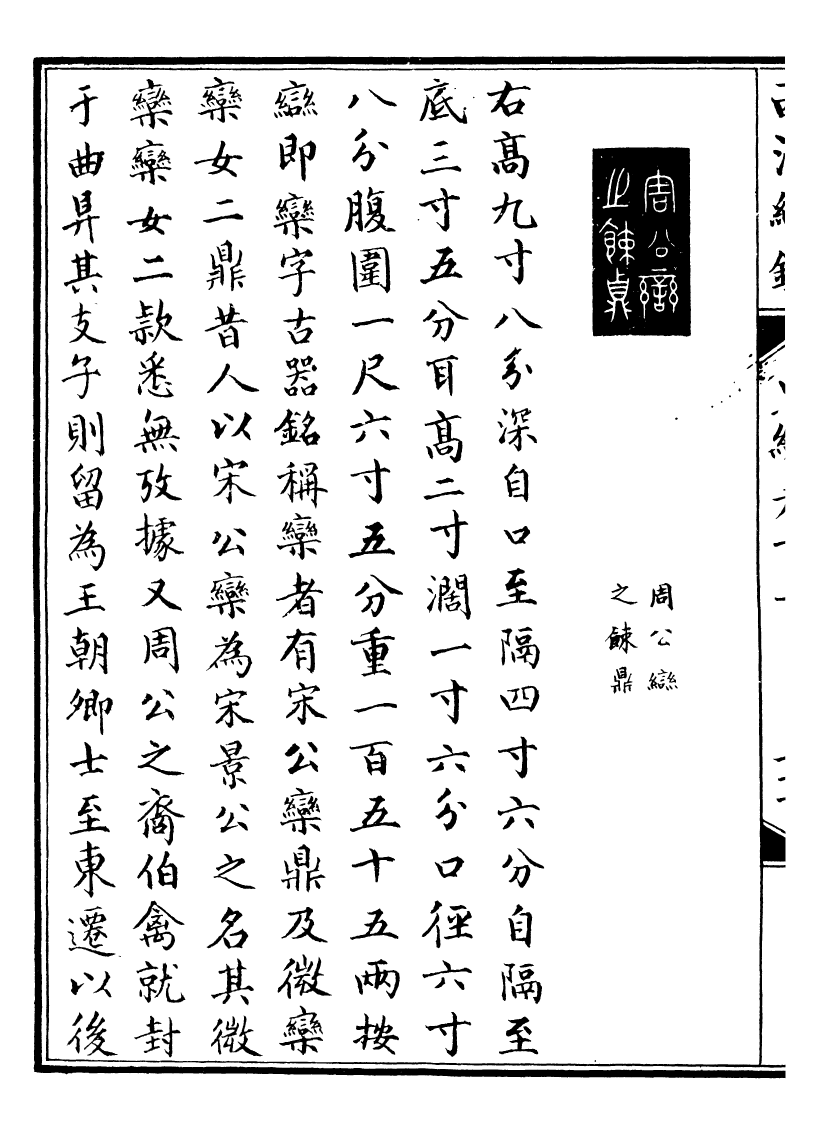 周公䜌
之餗鼎
周公䜌
之餗鼎
右髙九寸八分深自口至隔四寸六分自隔至
底三寸五分耳髙二寸濶一寸六分口徑六寸
八分腹圍一尺六寸五分重一百五十五兩按
䜌即欒字古器銘稱欒者有宋公欒鼎及微欒
欒女二鼎昔人以宋公欒為宋景公之名其微
欒欒女二款悉無攷據又周公之裔伯禽就封
于曲阜其支子則留為王朝卿士至東遷以後